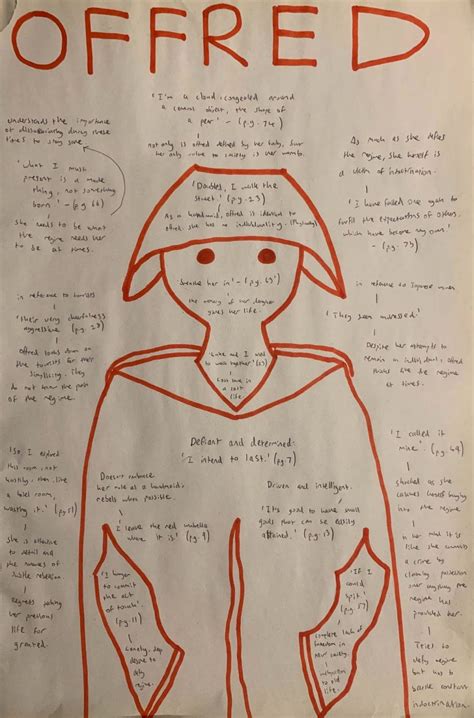 OFFRED
'I'm a cloud, congealed around
a central object, the shape of
a pear' - (pg. 74)
not only is offred defined by her body, but
her only value to society is her womb.
understands the importance
of dissociating during these
times to stay sane
'What I must
present is a made
thing, not something
born.' - (pg. 66)
She needs to be what
the regime needs her
to be at times.
As much as she defies
the regime, she herself is
a victim of indoctrination.
'I have failed once again to
fulfil the expectations of others,
which have become my own.'
- (pg. 73)
'Doubled, I walk the
street.' (pg. 23)
As a handmaid, offred is identical to
others, she has no individuality.
in reference to tourists
'their very cheerfulness
aggressive' (pg. 27)
Offred looks down on
the tourists for their
simplicity. They
do not know the pain
of the regime.
in her' - (pg. 63)
the memory of her daughter
gives her life.
in reference to Japanese women
'They seem undressed.'
Despite her attempts to
remain an individual, offred
thinks like the regime
at times.
Luke and I used
to walk together' (23)
Lost love in
a past
life
Defiant and determined:
'I intend to last.' (pg. 7)
Doesn't embrace
her role as a handmaid,
rebels when possible.
I leave the red umbrella
where it is' (pg. 9)
Driven and intelligent.
'It's good to have small
goals that can be easily
attained.' (pg. 13)
I explored
this room, not
hastily, then, like
a hotel room,
wasting it.' (pg. 51)
she is attentive
to detail and
the
subtle rebellion.
Regrets taking
her previous
life for
granted.
'I hunger
to commit
the act
of touch' (pg. 11)
Lonely, deep
desire to
defy
regime.
'If I
could
spit' (pg. 17)
complete lack of
freedom in
new society.
to old
life.
'I called it
mine'. (pg. 49)
shocked as she
herself
into the regime
in her mind is is
like she commits
a crime by
claiming possession
over anything the
regime has
provided her.
Tries to
defy regime
but has to
battle
indoctrination.